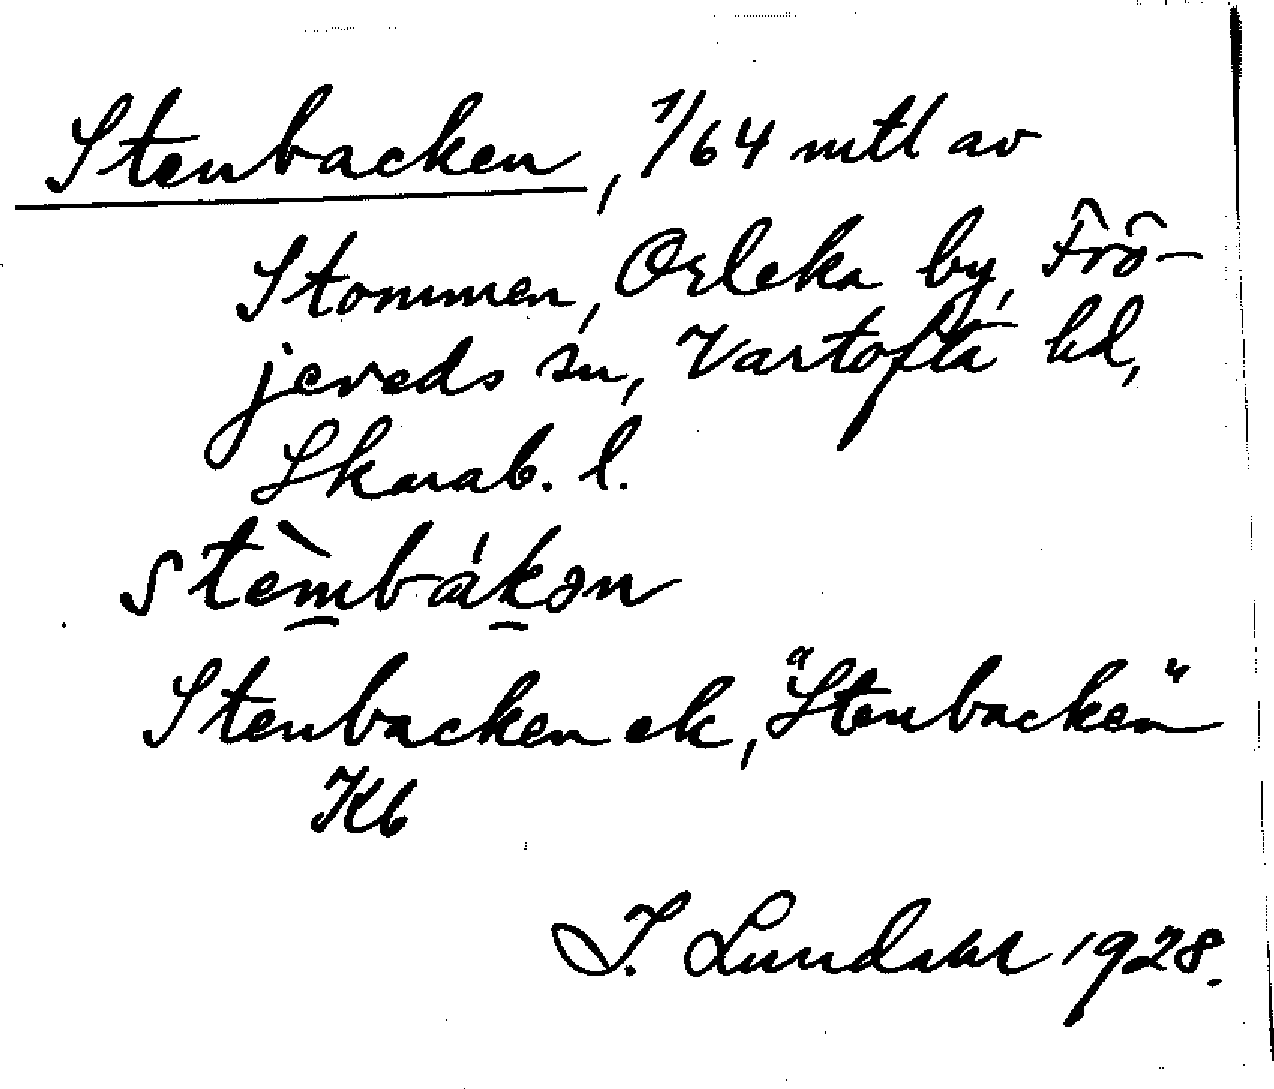 Stenbacken, 1/64 mtl av
Stommen, Orleka by, Frö-
jereds sn, Vartofta hd,
Skarab. l.
stèm̲bák̲ən
Stenbacken ek, "Stenbacken"
Kb
I. Lundahl 1928.